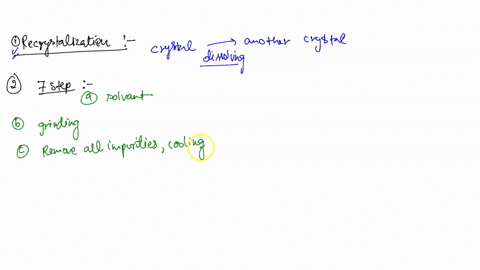 ① Recrystalization :- crystal → another crystal
dissolving
② 7 step :-
ⓐ solvant
ⓑ grinding
ⓒ Remove all impurities, cooling